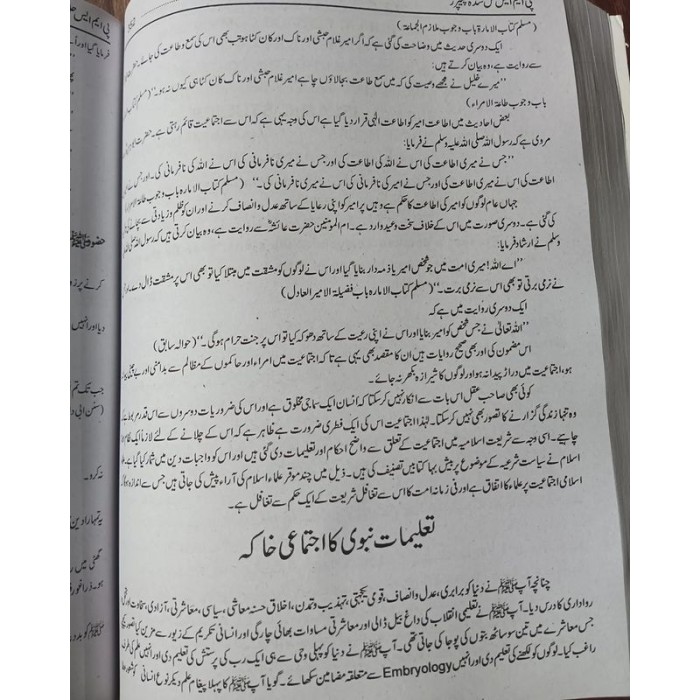 پی ایم ایس حل شدہ پیپرز
(مسلم کتاب الامارۃ باب وجوب ملازم الجماعۃ)
ایک دوسری حدیث میں وضاحت کی گئی ہے کہ اگر امیر غلام حبشی اور ناک اور کان کٹا ہو تب بھی اس کی سمع و طاعت کی جائے۔
سے روایت ہے، وہ بیان کرتے ہیں:
”میرے خلیل نے مجھے وصیت کی کہ میں سمع طاعت بجالاؤں چاہے امیر غلام حبشی اور ناک کان کٹا ہی کیوں نہ ہو۔“ (مسلم کتاب
باب وجوب طاعۃ الامراء)
بعض احادیث میں اطاعت امیر کو اطاعت الٰہی قرار دیا گیا ہے اس کی وجہ یہی ہے کہ اس سے اجتماعیت قائم رہتی ہے۔ حضرت
مردی ہے کہ رسول اللہ صلی اللہ علیہ وسلم نے فرمایا:
”جس نے میری اطاعت کی اس نے اللہ کی اطاعت کی اور جس نے میری نافرمانی کی اس نے اللہ کی نافرمانی کی۔ اور جس نے
اطاعت کی اس نے میری اطاعت کی اور جس نے میری نافرمانی کی اس نے میری نافرمانی کی۔“ (مسلم کتاب الامارہ باب وجوب طاعۃ
جہاں عام لوگوں کو امیر کی اطاعت کا حکم ہے وہیں پر امیر کو اپنی رعایا کے ساتھ عدل و انصاف کرنے اور ان کو ظلم و زیادتی سے بچانے
کی گئی ہے۔ دوسری صورت میں اس کے خلاف سخت وعید وارد ہے۔ ام المومنین حضرت عائشہؓ سے روایت ہے، وہ بیان کرتی ہیں کہ رسول اللہ
وسلم نے ارشاد فرمایا:
”اے اللہ! میری امت میں جو شخص امیر یا ذمہ دار بنایا گیا اور اس نے لوگوں کو مشقت میں مبتلا کیا تو بھی اس پر مشقت ڈال دے۔
نے نرمی برتی تو بھی اس سے نرمی برت۔“ (مسلم کتاب الامارہ باب فضیلۃ الامیر العادل)
ایک دوسری روایت میں ہے کہ
”اللہ تعالیٰ نے جس شخص کو امیر بنایا اور اس نے اپنی رعیت کے ساتھ دھوکہ کیا تو اس پر جنت حرام ہوگی۔“ (حوالہ سابق)
اس مضمون کی اور بھی صحیح روایات ہیں ان کا مقصد بھی یہی ہے تاکہ اجتماعیت میں امراء اور حاکموں کے مظالم سے بدامنی اور بے چینی
ہو، اجتماعیت میں دراڑ پیدا نہ ہو اور لوگوں کا شیرازہ بکھر نہ جائے۔
کوئی بھی صاحب عقل اس بات سے انکار نہیں کر سکتا کہ انسان ایک سماجی مخلوق ہے اور اس کی ضروریات دوسروں سے اس قدر
وہ تنہا زندگی گزارنے کا تصور بھی نہیں کر سکتا۔ لہٰذا اجتماعیت اس کی ایک فطری ضرورت ہے ظاہر ہے کہ اس کے چلانے کے لئے لازماً ایک
چاہیے۔ اسی وجہ سے شریعت اسلامیہ میں اجتماعیت کے تعلق سے واضح احکام اور تعلیمات دی گئی ہیں اور اس کو واجبات دین میں شمار کیا گیا ہے،
اسلام نے سیاست شرعیہ کے موضوع پر بیش بہا کتابیں تصنیف کی ہیں۔ ذیل میں چند موقر علماء اسلام کی آراء پیش کی جاتی ہیں جس سے اندازہ ہوگا
اسلامی اجتماعیت پر علماء کا اتفاق ہے اور فی زمانہ امت کا اس سے تغافل شریعت کے ایک حکم سے تغافل ہے۔
تعلیمات نبوی کا اجتماعی خاکہ
چنانچہ آپ ﷺ نے دنیا کو برابری، عدل و انصاف، قومی یکجہتی، تہذیب و تمدن، اخلاق حسنہ معاشی، سیاسی، معاشرتی، آزادی، سخاوت اور
رواداری کا درس دیا۔ آپ ﷺ نے تعلیمی انقلاب کی داغ بیل ڈالی اور معاشرتی مساوات بھائی چارگی اور انسانی تکریم کے زیور سے مزین کیا
جس معاشرے میں تین سو ساٹھ بتوں کی پوجا کی جاتی تھی۔ آپ ﷺ نے دنیا کو پہلی وحی سے ہی ایک رب کی پرستش کی تعلیم دی اور انہیں علم کی طرف
راغب کیا۔ لوگوں کو لکھنے کی تعلیم دی اور انہیں Embryology سے متعلقہ مضامین سکھائے۔ گویا آپ ﷺ کا پہلا پیغام علم دیکر نوع انسانی کو
پی ایم ایس
فرمایا گیا اور
حضور ﷺ
کرنے
دیا اور انہیں
جب تک تم
(سنن ابی
نہ کرو۔
یہ تمہارا دین
گھٹی میں